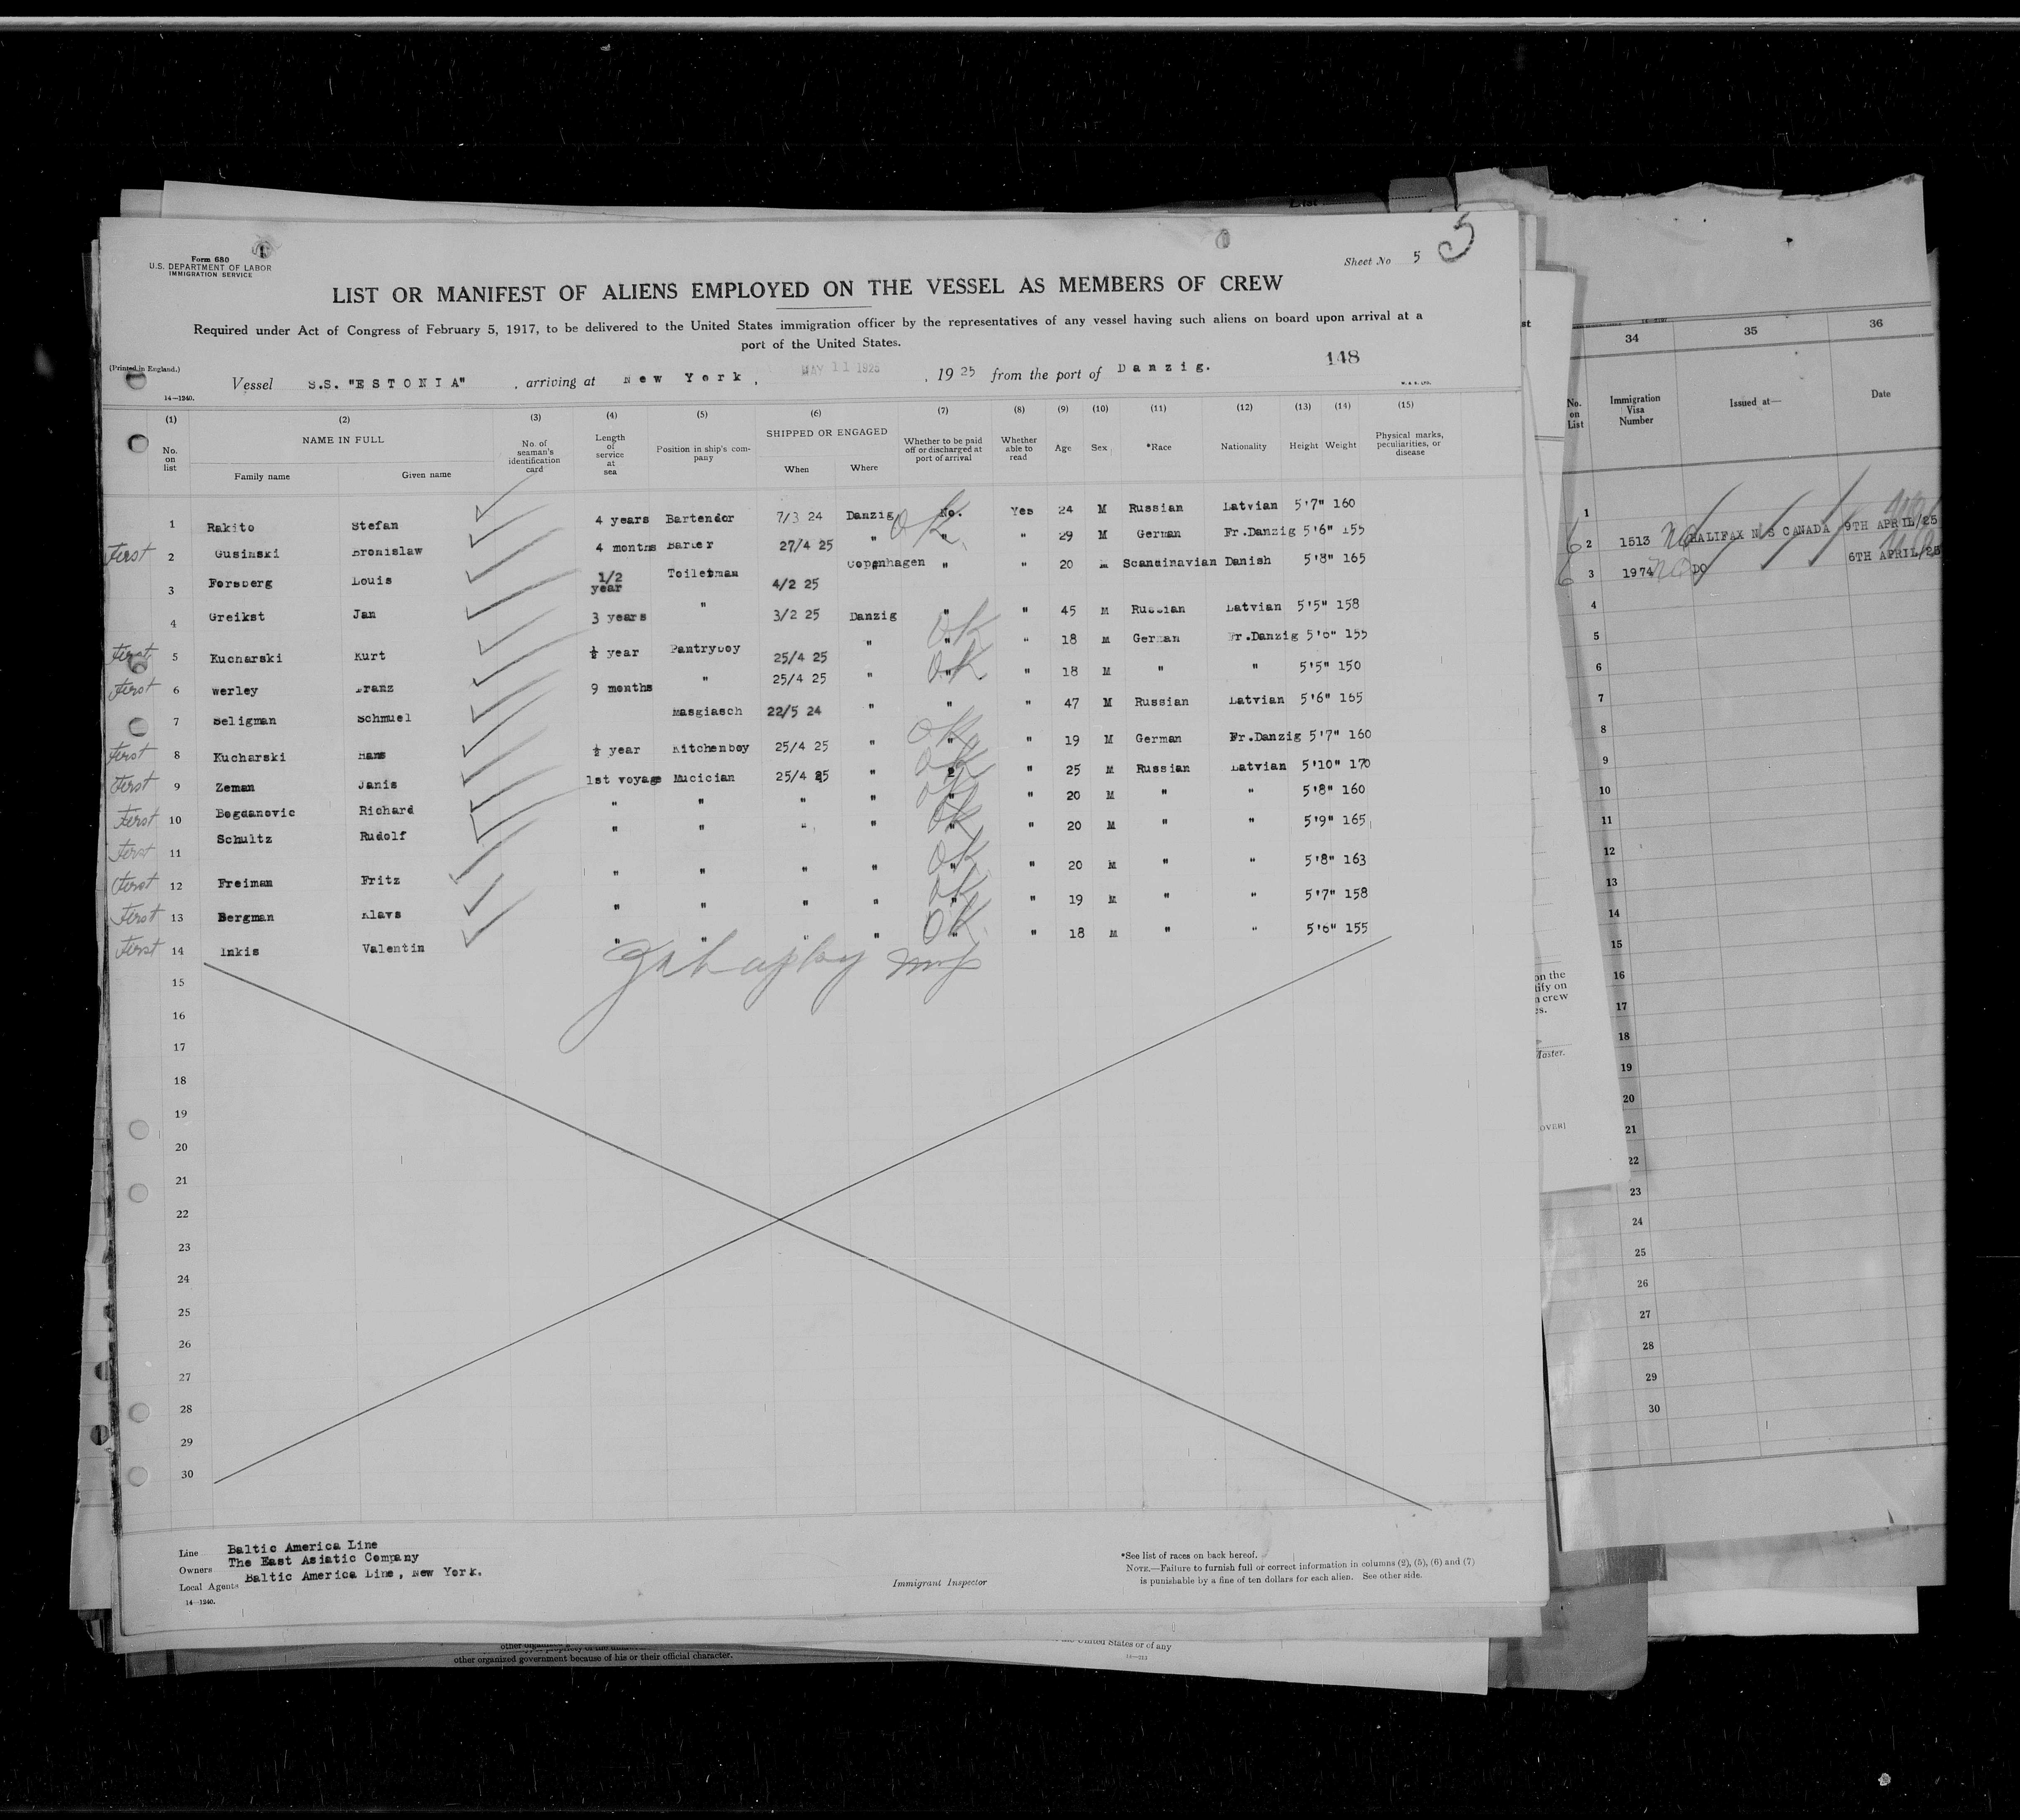 List
Form 680
U.S. DEPARTMENT OF LABOR
IMMIGRATION SERVICE
Sheet No 5
5
LIST OR MANIFEST OF ALIENS EMPLOYED ON THE VESSEL AS MEMBERS OF CREW
Required under Act of Congress of February 5, 1917, to be delivered to the United States immigration officer by the representatives of any vessel having such aliens on board upon arrival at a
port of the United States.
148
(Printed in England.)
Vessel S.S. "ESTONIA" , arriving at New York, MAY 11 1925 , 1925 from the port of Danzig.
14—1240.
(1) (2) (3) (4) (5) (6) (7) (8) (9) (10) (11) (12) (13) (14) (15)
No. on list NAME IN FULL Family name Given name No. of seaman's identification card Length of service at sea Position in ship's company SHIPPED OR ENGAGED When Where Whether to be paid off or discharged at port of arrival Whether able to read Age Sex *Race Nationality Height Weight Physical marks, peculiarities, or disease
1 Rakito Stefan 4 years Bartender 7/3 24 Danzig No. OK Yes 24 M Russian Latvian 5'7" 160
First 2 Gusinski Bronislaw 4 months Barber 27/4 25 " " " 29 M German Fr.Danzig 5'6" 155
3 Forsberg Louis 1/2 year Toiletman 4/2 25 Copenhagen " " 20 M Scandinavian Danish 5'8" 165
4 Greikst Jan 3 years " 3/2 25 Danzig " " 45 M Russian Latvian 5'5" 158
First 5 Kucharski Kurt ½ year Pantryboy 25/4 25 " " OK " 18 M German Fr.Danzig 5'6" 155
First 6 Werley Franz 9 months " 25/4 25 " " OK " 18 M " " 5'5" 150
7 Seligman Schmuel Masgiasch 22/5 24 " " " 47 M Russian Latvian 5'6" 165
First 8 Kucharski Hans ½ year Kitchenboy 25/4 25 " " OK " 19 M German Fr.Danzig 5'7" 160
First 9 Zeman Janis 1st voyage Mucician 25/4 25 " " OK " 25 M Russian Latvian 5'10" 170
First 10 Bogdanovic Richard " " " " " OK " 20 M " " 5'8" 160
First 11 Schultz Rudolf " " " " " OK " 20 M " " 5'9" 165
First 12 Freiman Fritz " " " " " OK " 20 M " " 5'8" 163
First 13 Bergman Klavs " " " " " OK " 19 M " " 5'7" 158
First 14 Inkis Valentin " " " " " OK " 18 M " " 5'6" 155
15
16
17
18
19
20
21
22
23
24
25
26
27
28
29
30
Line Baltic America Line
Owners The East Asiatic Company
Local Agents Baltic America Line, New York.
14—1240.
Immigrant Inspector
*See list of races on back hereof.
NOTE.—Failure to furnish full or correct information in columns (2), (5), (6) and (7)
is punishable by a fine of ten dollars for each alien. See other side.
other organized government because of his or their official character.
United States or of any
st
on the
tify on
n crew
es.
Master.
OVER]
34 35 36
No. on List Immigration Visa Number Issued at— Date
1
6 2 1513 no HALIFAX N S CANADA 9TH APRIL/25
6 3 1974 no DO 6TH APRIL/25
4
5
6
7
8
9
10
11
12
13
14
15
16
17
18
19
20
21
22
23
24
25
26
27
28
29
30